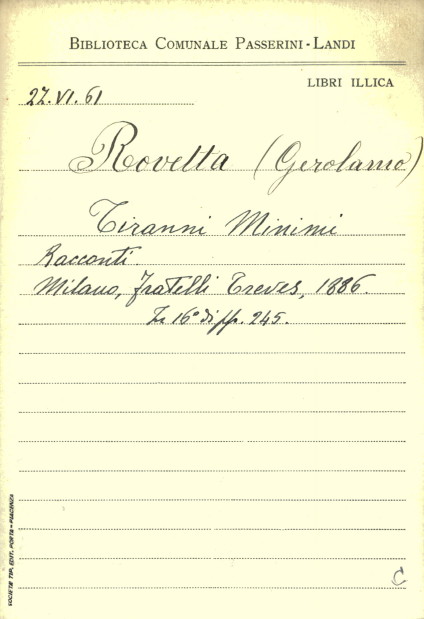 BIBLIOTECA COMUNALE PASSERINI-LANDI
LIBRI ILLICA
27.VI.61
Rovetta (Gerolamo)
Tiranni Minimi
Racconti.
Milano, Fratelli Treves, 1886.
In 16° di pp. 245.
SOCIETÀ TIP. EDIT. PORTA - PIACENZA
C